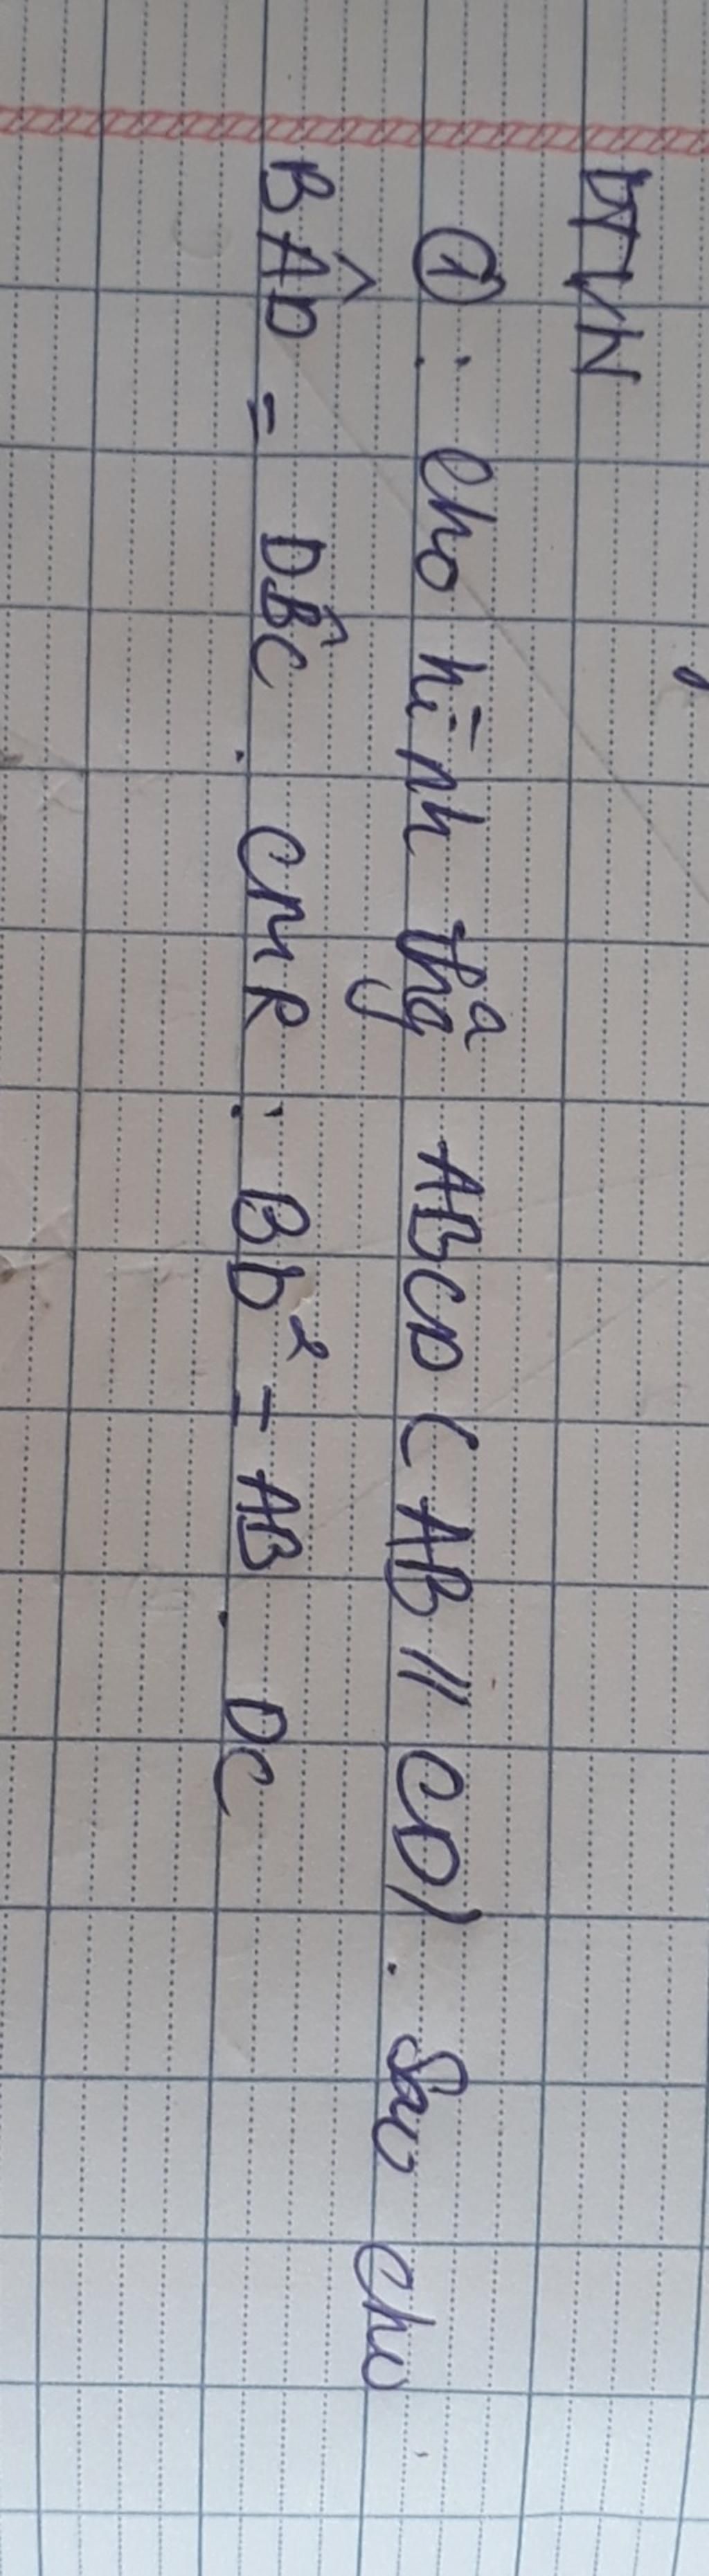 BTVN
① : Cho hình thg ABCD (AB // CD). Sao cho
BÂD = DB̂C. CMR : BD² = AB . DC